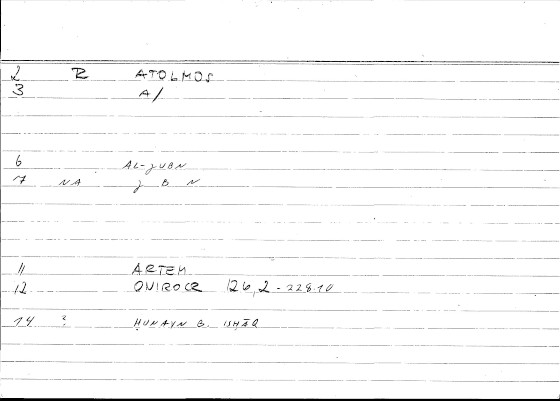 2 R ATOLMOS
3 A/
6 AL-ǧUBN
7 NA ǧ B N
11 ARTEM
12 ONIROCR 126,2-228.10
14 ? ḤUNAYN B. ISḤĀQ